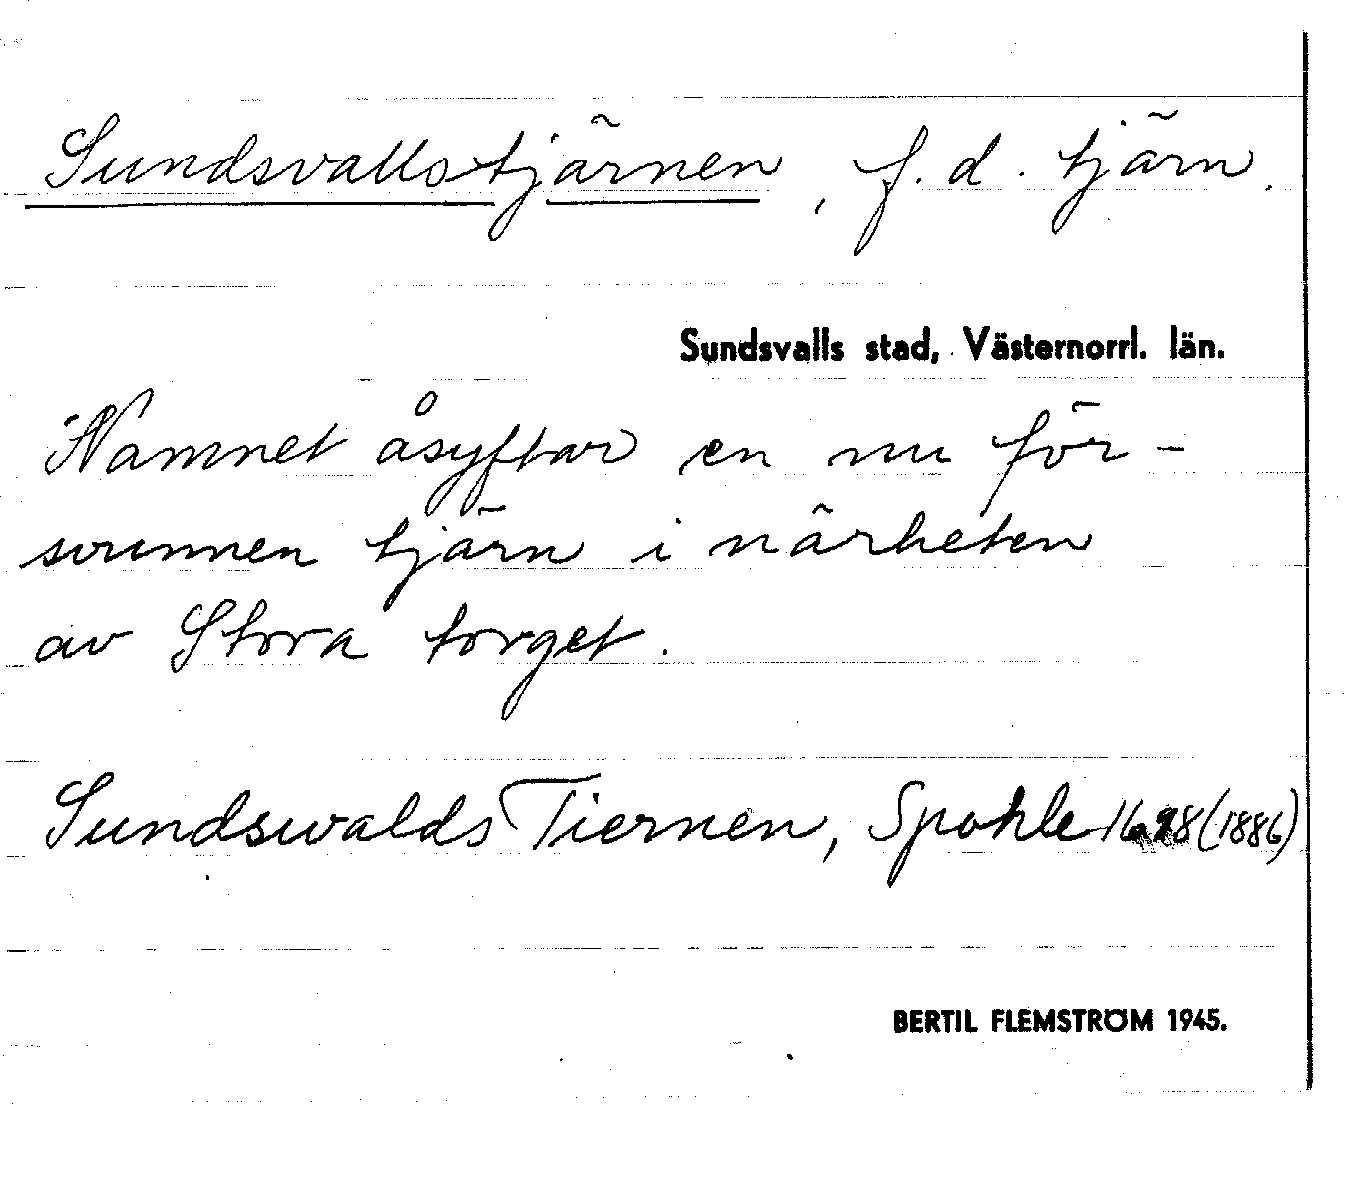 Sundsvallstjärnen, f.d. tjärn.
Sundsvalls stad, Västernorrl. län.
Namnet åsyftar en nu för-
svunnen tjärn i närheten
av Stora torget.
Sundswalds Tiernen, Spohle 1698 (1886)
BERTIL FLEMSTRÖM 1945.